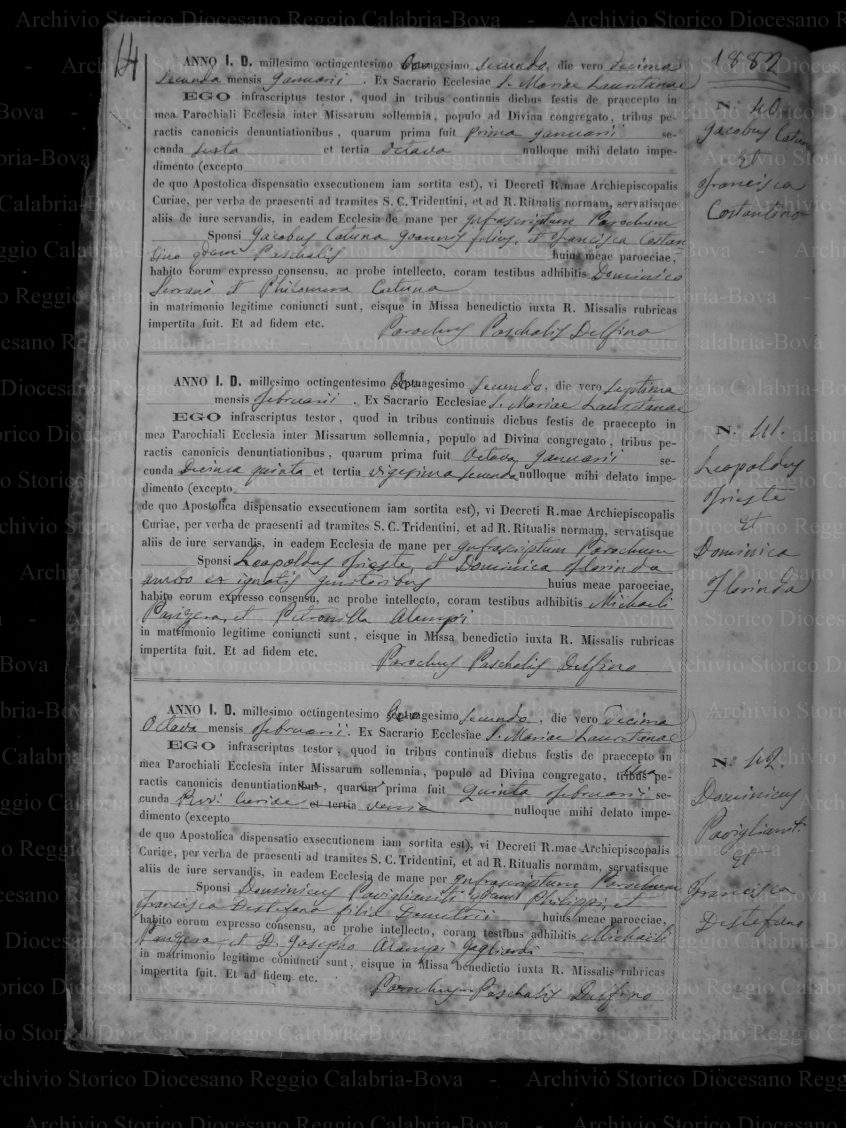 14
1882
ANNO I. D. millesimo octingentesimo Octuagesimo secundo, die vero decima
secunda mensis Januarii. Ex Sacrario Ecclesiae S. Mariae Lauretanae
EGO infrascriptus testor, quod in tribus continuis diebus festis de praecepto in
mea Parochiali Ecclesia inter Missarum sollemnia, populo ad Divina congregato, tribus pe-
ractis canonicis denuntiationibus, quarum prima fuit prima Januarii se-
cunda sexta et tertia Octava nulloque mihi delato impe-
dimento (excepto
de quo Apostolica dispensatio exsecutionem iam sortita est), vi Decreti R.mae Archiepiscopalis
Curiae, per verba de praesenti ad tramites S. C. Tridentini, et ad R. Ritualis normam, servatisque
aliis de iure servandis, in eadem Ecclesia de mane per Infrascriptum Parochum
Sponsi Jacobus Catona Joannis filius, et Francisca Costan
tino qdam Paschalis huius meae paroeciae,
habito eorum expresso consensu, ac probe intellecto, coram testibus adhibitis Dominico
Serranò et Philomena Catona
in matrimonio legitime coniuncti sunt, eisque in Missa benedictio iuxta R. Missalis rubricas
impertita fuit. Et ad fidem etc.
Parochus Paschalis Delfino
N. 40.
Jacobus Catona
et
Francisca
Costantino
ANNO I. D. millesimo octingentesimo Octuagesimo secundo, die vero septima
mensis Februarii. Ex Sacrario Ecclesiae S. Mariae Lauretanae
EGO infrascriptus testor, quod in tribus continuis diebus festis de praecepto in
mea Parochiali Ecclesia inter Missarum sollemnia, populo ad Divina congregato, tribus pe-
ractis canonicis denuntiationibus, quarum prima fuit Octava Januarii se-
cunda Decima quinta et tertia vigesima secunda nulloque mihi delato impe-
dimento (excepto
de quo Apostolica dispensatio exsecutionem iam sortita est), vi Decreti R.mae Archiepiscopalis
Curiae, per verba de praesenti ad tramites S. C. Tridentini, et ad R. Ritualis normam, servatisque
aliis de iure servandis, in eadem Ecclesia de mane per Infrascriptum Parochum
Sponsi Leopoldus Trieste, et Dominica Florinda
ambo ex ignotis genitoribus huius meae paroeciae,
habito eorum expresso consensu, ac probe intellecto, coram testibus adhibitis Michaeli
et Petronilla Alampi
in matrimonio legitime coniuncti sunt, eisque in Missa benedictio iuxta R. Missalis rubricas
impertita fuit. Et ad fidem etc.
Parochus Paschalis Delfino
N. 41.
Leopoldus
Trieste
et
Dominica
Florinda
ANNO I. D. millesimo octingentesimo Octuagesimo secundo, die vero Decima
Octava mensis Februarii. Ex Sacrario Ecclesiae S. Mariae Lauretanae
EGO infrascriptus testor, quod in tribus continuis diebus festis de praecepto in
mea Parochiali Ecclesia inter Missarum sollemnia, populo ad Divina congregato, tribus pe-
ractis canonicis denuntiationibus, quarum prima fuit quinta Februarii se-
cunda Curiae et tertia venia nulloque mihi delato impe-
dimento (excepto
de quo Apostolica dispensatio exsecutionem iam sortita est), vi Decreti R.mae Archiepiscopalis
Curiae, per verba de praesenti ad tramites S. C. Tridentini, et ad R. Ritualis normam, servatisque
aliis de iure servandis, in eadem Ecclesia de mane per Infrascriptum Parochum
Sponsi Dominicus Paviglianiti qdam Philippi, et
Francisca Destefano filia Demetrii huius meae paroeciae,
habito eorum expresso consensu, ac probe intellecto, coram testibus adhibitis Michaeli
et D. Josepho Alampi Gagliardi
in matrimonio legitime coniuncti sunt, eisque in Missa benedictio iuxta R. Missalis rubricas
impertita fuit. Et ad fidem etc.
Parochus Paschalis Delfino
N. 42.
Dominicus
Paviglianiti
et
Francisca
Destefano